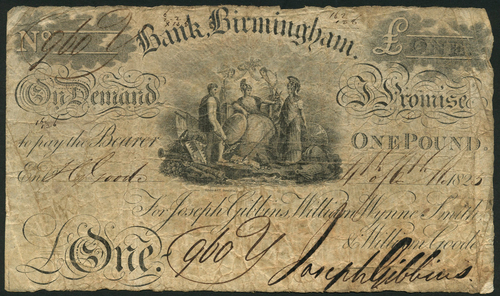 Bank, Birmingham.
No. 960 Y
£ ONE
On Demand I Promise
to pay the Bearer ONE POUND.
Goode 1825
For Joseph Gibbins, William Wynne Smith
& William Goode
£ One. 960 Y Joseph Gibbins.